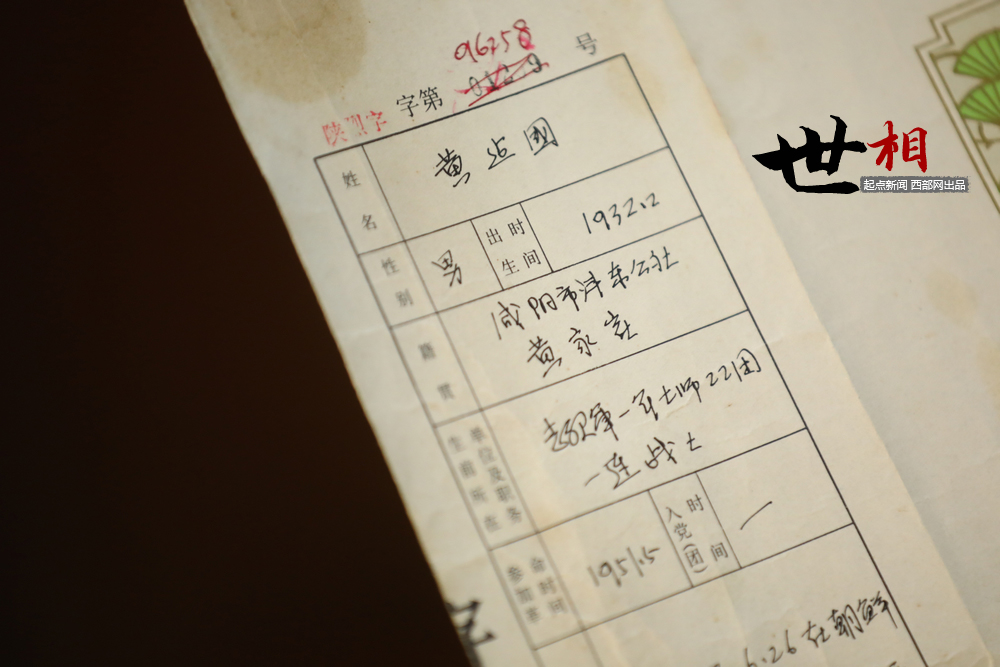 96258
陕 字 字第 号
姓名 黄占国
性别 男 出生时间 1932.12
籍贯 咸阳市沣东公社
黄家寨
生前所在单位及职务 志愿军一军七师22团
一连战士
参加革命时间 1951.5 入党(团)时间 一
6.26在朝鲜
世相
起点新闻 西部网出品